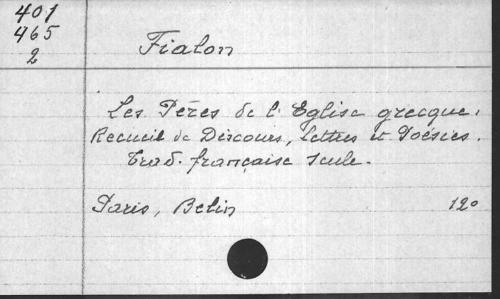 401
465
2
Fialon
Les Pères de l'Eglise grecque.
Recueil de Discours, lettres et Poésies.
Trad. française seule.
Paris, Belin 12°